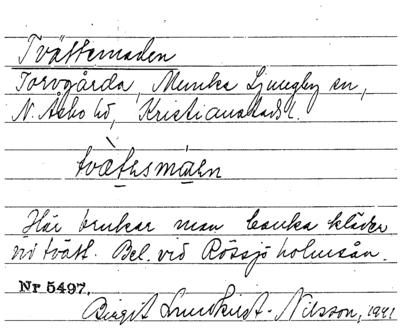 Tvättemaden
Torvgårda, Munka Ljungby sn,
N. Åsbo hd, Kristianstads l.
tvæthsmáen
Här brukar man banka kläder
vid tvätt. Bel. vid Rössjöholmsån.
Nr 5497.
Birgit Lundkvist-Nilsson, 1941